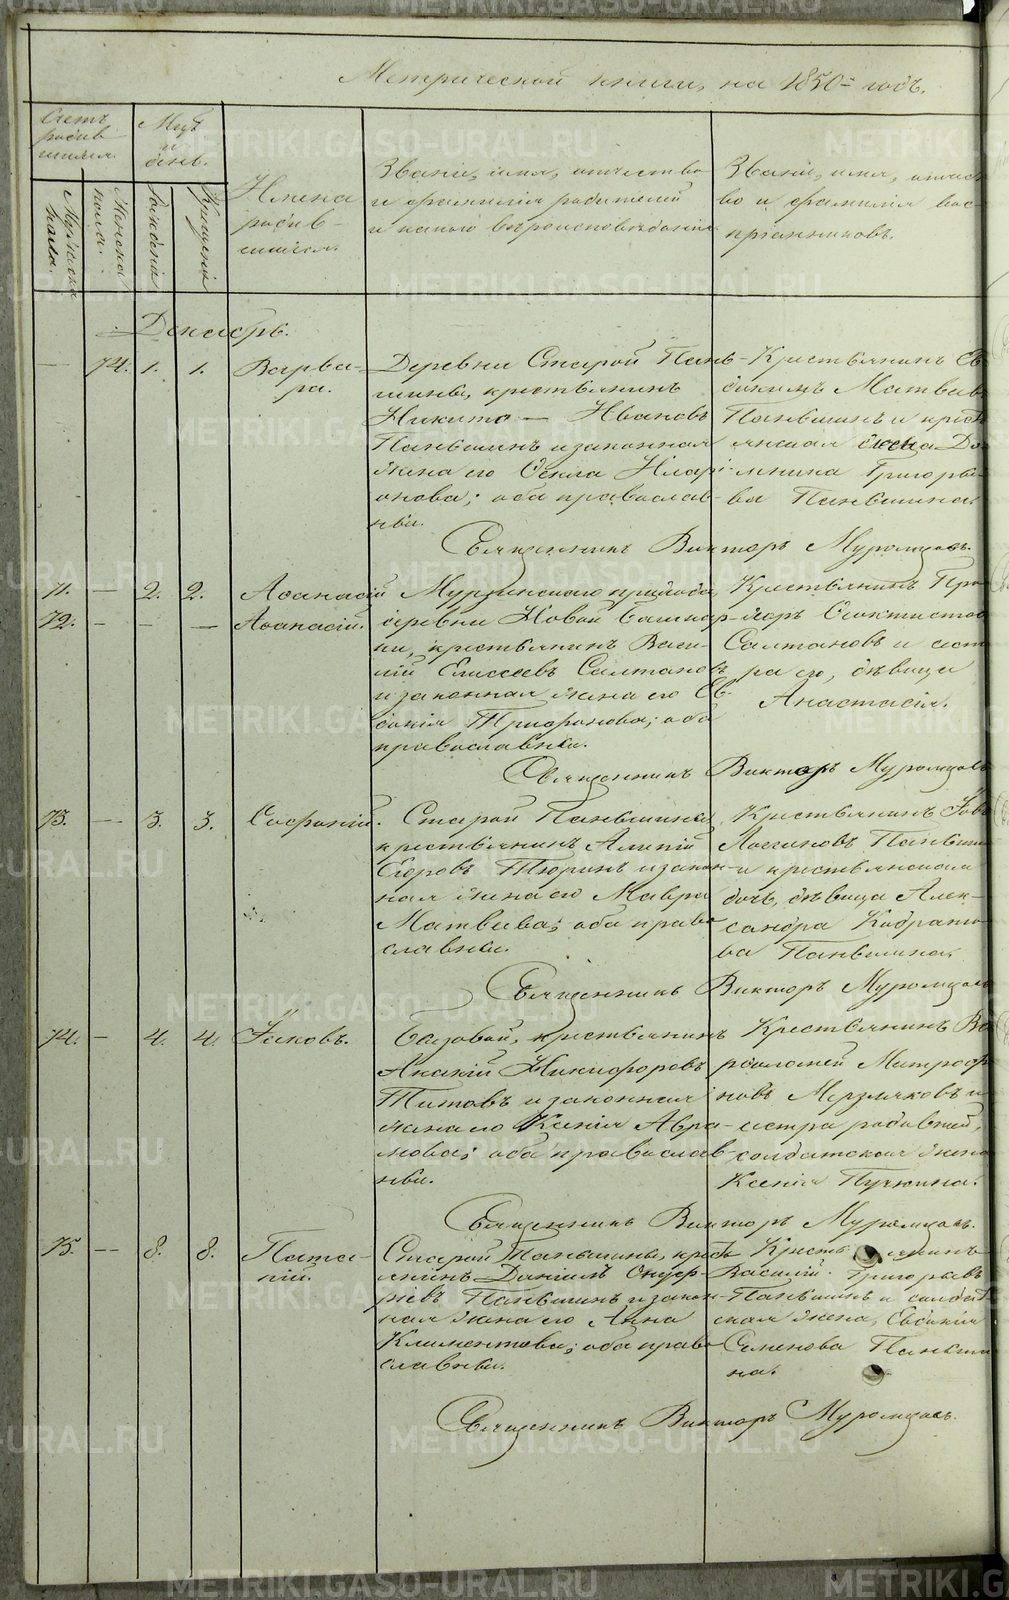 Метрической книги, на 1850й годъ.
Счетъ родив-шихся.
Мужска пола.
Женска пола.
Мсцъ и день.
Рожденія
Крещенія
Имена родив-шихся.
Званіе, имя, отчество
и фамилія родителей
и какого вѣроисповѣданія.
Званіе, имя, отчест
во и фамилія вос-
пріемниковъ.
Декабрь.
— 74. 1. 1. Варва-
ра.
Деревни Старой Пань-
шины, крестьянинъ
Никита — Ивановъ
Паньшинъ и законная
жена его Ѳекла Иларі-
онова; оба православ-
ны.
Крестьянинъ Ев
докимъ Матвѣевъ
Паньшинъ и крест
янская жена До
мника Григорье-
ва Паньшина.
Священникъ Викторъ Муромцовъ.
71. — 2. 2. Аѳанасій
72. — — — Аѳанасій.
Мурзинскаго прихода
деревни Новой Башкар-
ки, крестьянинъ Васи-
лій Елисеевъ Салтановъ
и законная жена его Ев-
докія Трифонова; оба
православны.
Крестьянинъ Про
Ѳеоктистов
Салтановъ и сест
ра его, дѣвица
Анастасія.
Священникъ Викторъ Муромцовъ
73. — 3. 3. Софоній.
Старой Паньшины,
крестьянинъ Алексій
Егоровъ Тюринъ и закон-
ная жена его Мавра
Матвѣева; оба право
славны.
Крестьянинъ Іовъ
Логиновъ Паньшин
и крестьянская
дочь, дѣвица Алек-
сандра Кодрато-
ва Паньшина.
Священникъ Викторъ Муромцовъ
74. — 4. 4. Іаковъ.
крестьянинъ
Анакій Никифоровъ
Титовъ и законная
жена его Ксенія Авра-
мова; оба православ-
ны.
Крестьянинъ Ва
рѳоломей Митроф
новъ Мерзляковъ и
сестра родившей,
солдатская жена
Ксенія Пучкина.
Священникъ Викторъ Муромцовъ.
75. — 8. 8. Пата-
пій.
Старой Паньшины, крест
янинъ Даніилъ Онуф-
ріевъ Паньшинъ и закон-
ная жена его Анна
Климентова; оба право
славны.
Крестьянинъ
Василій Григорьевъ
Паньшинъ и солдат
ская жена, Евдокия
Семенова Паньши
на.
Священникъ Викторъ Муромцовъ.
METRIKI.GASO-URAL.RU